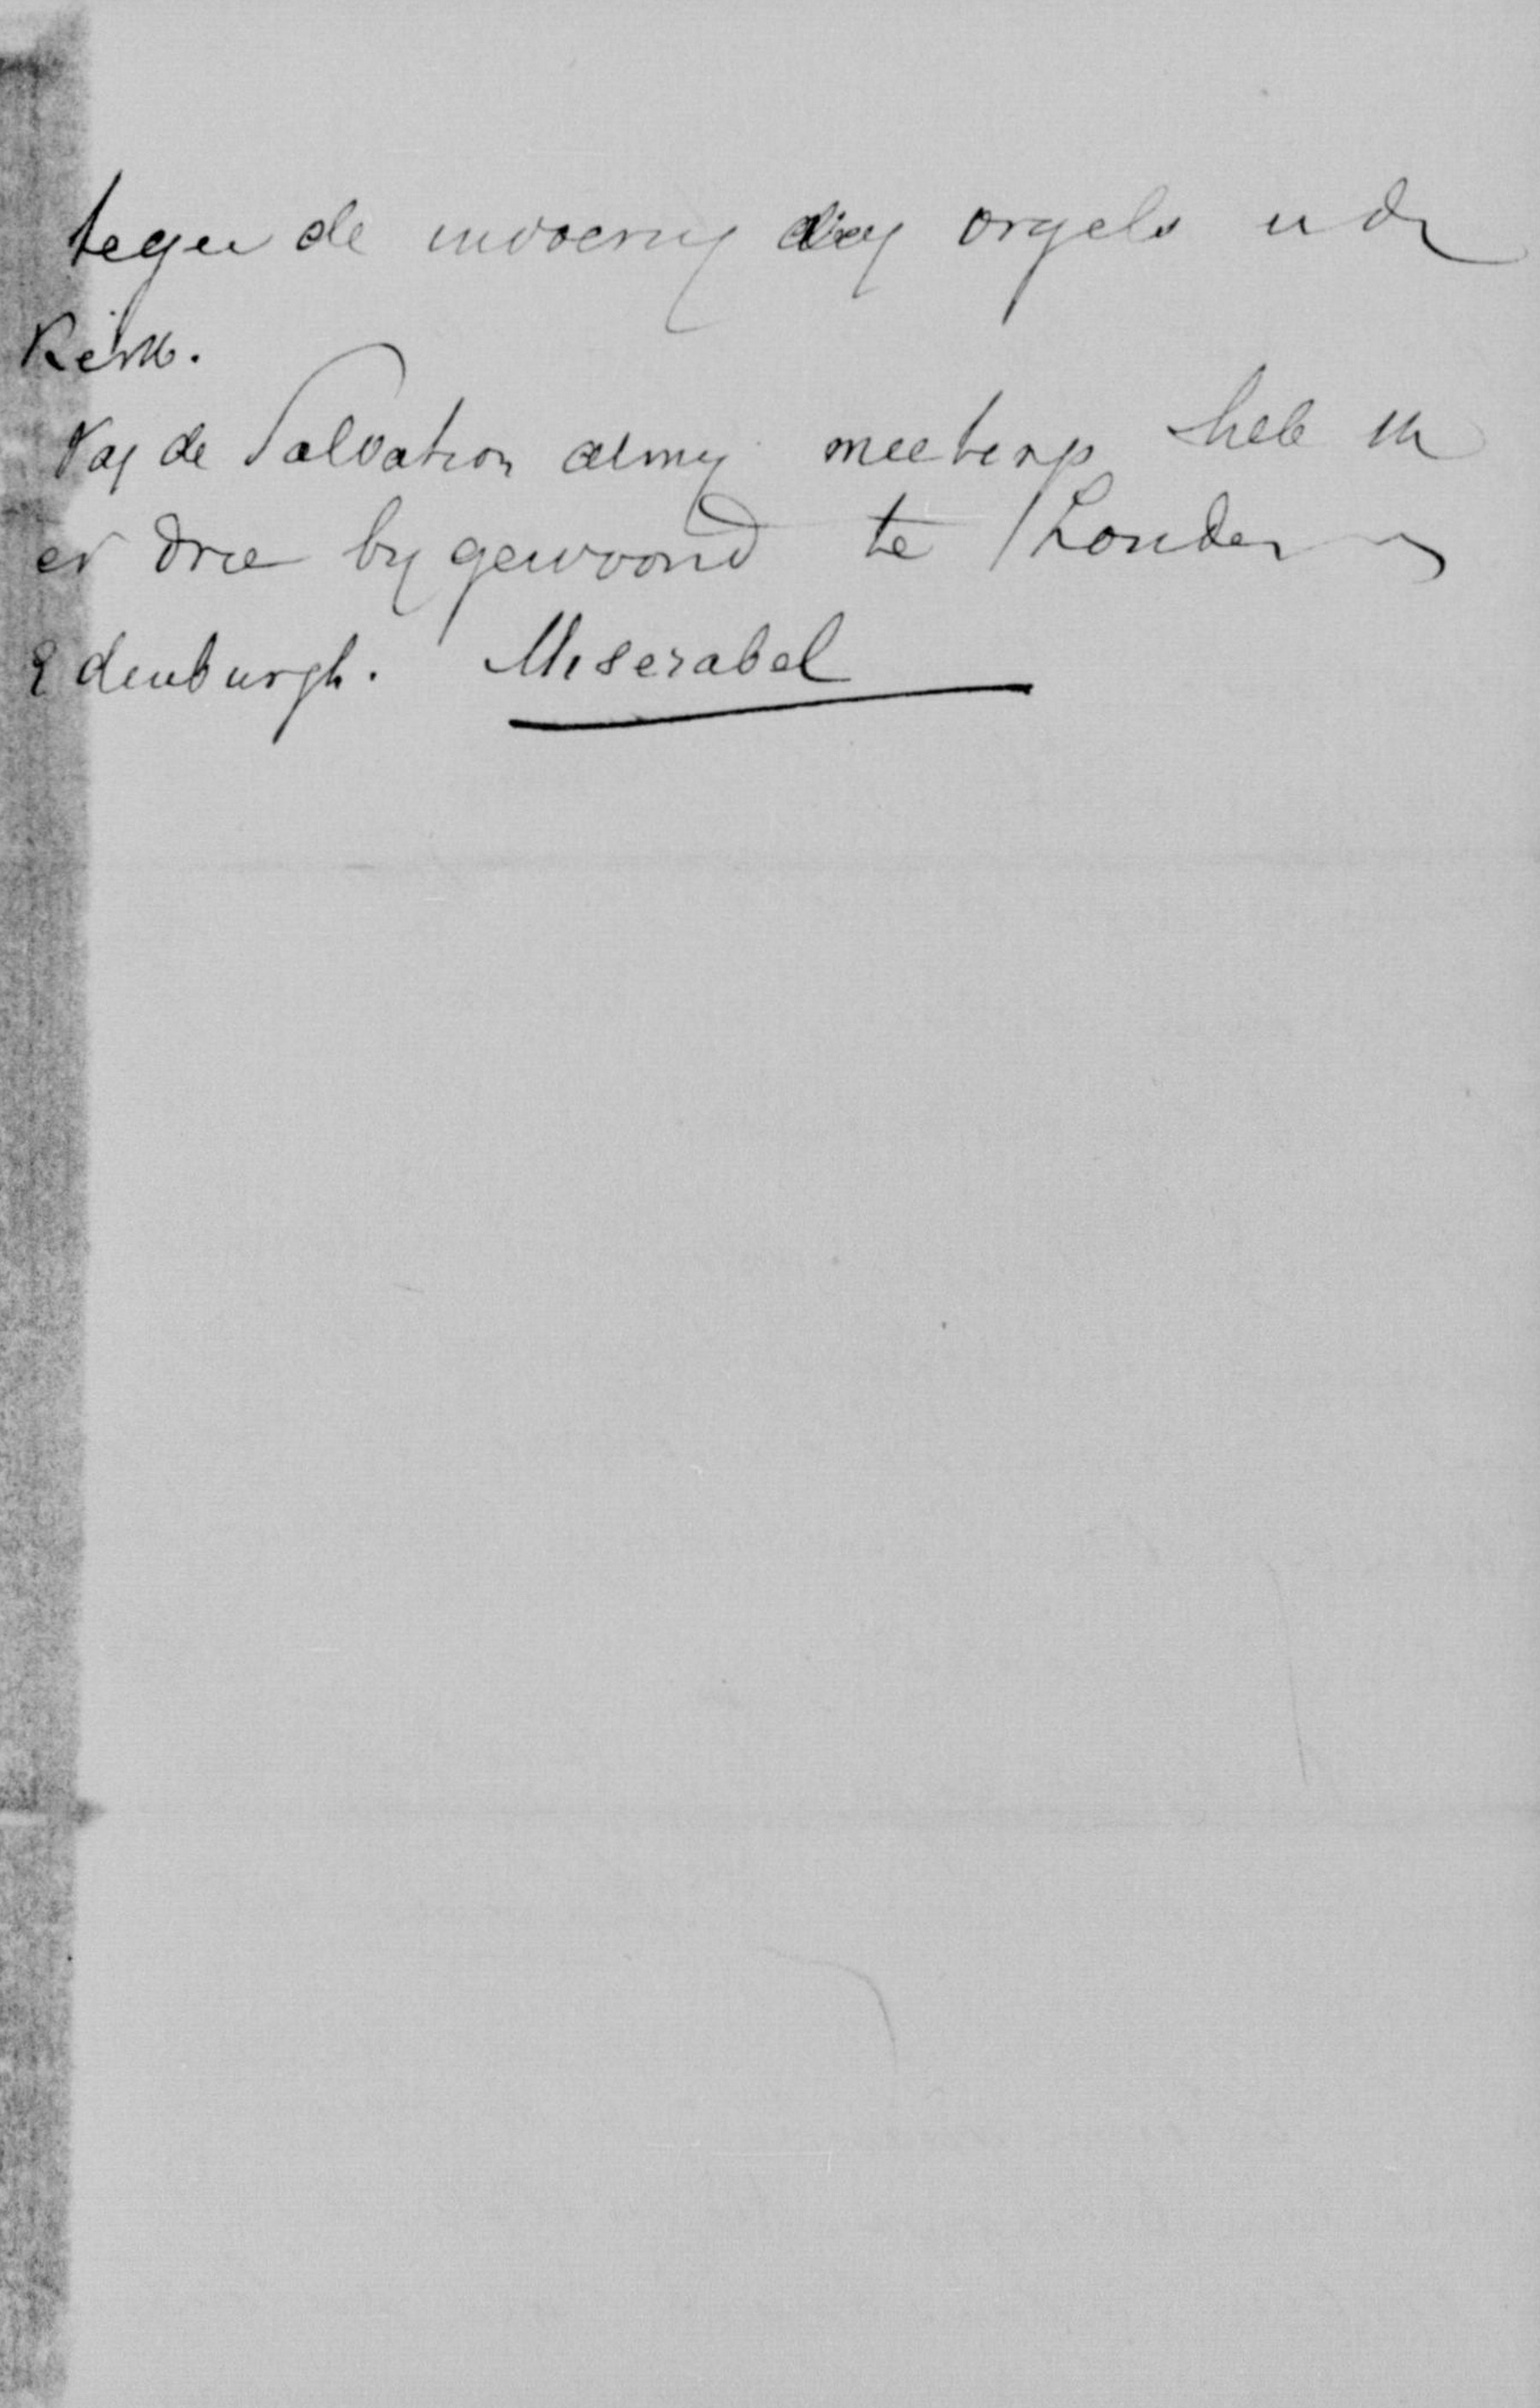 tegen de invoering van orgels in de
Kerk.
Van de Salvation army meetings heb ik
er drie bygewoond te Londen en
Edenburgh. Miserabel